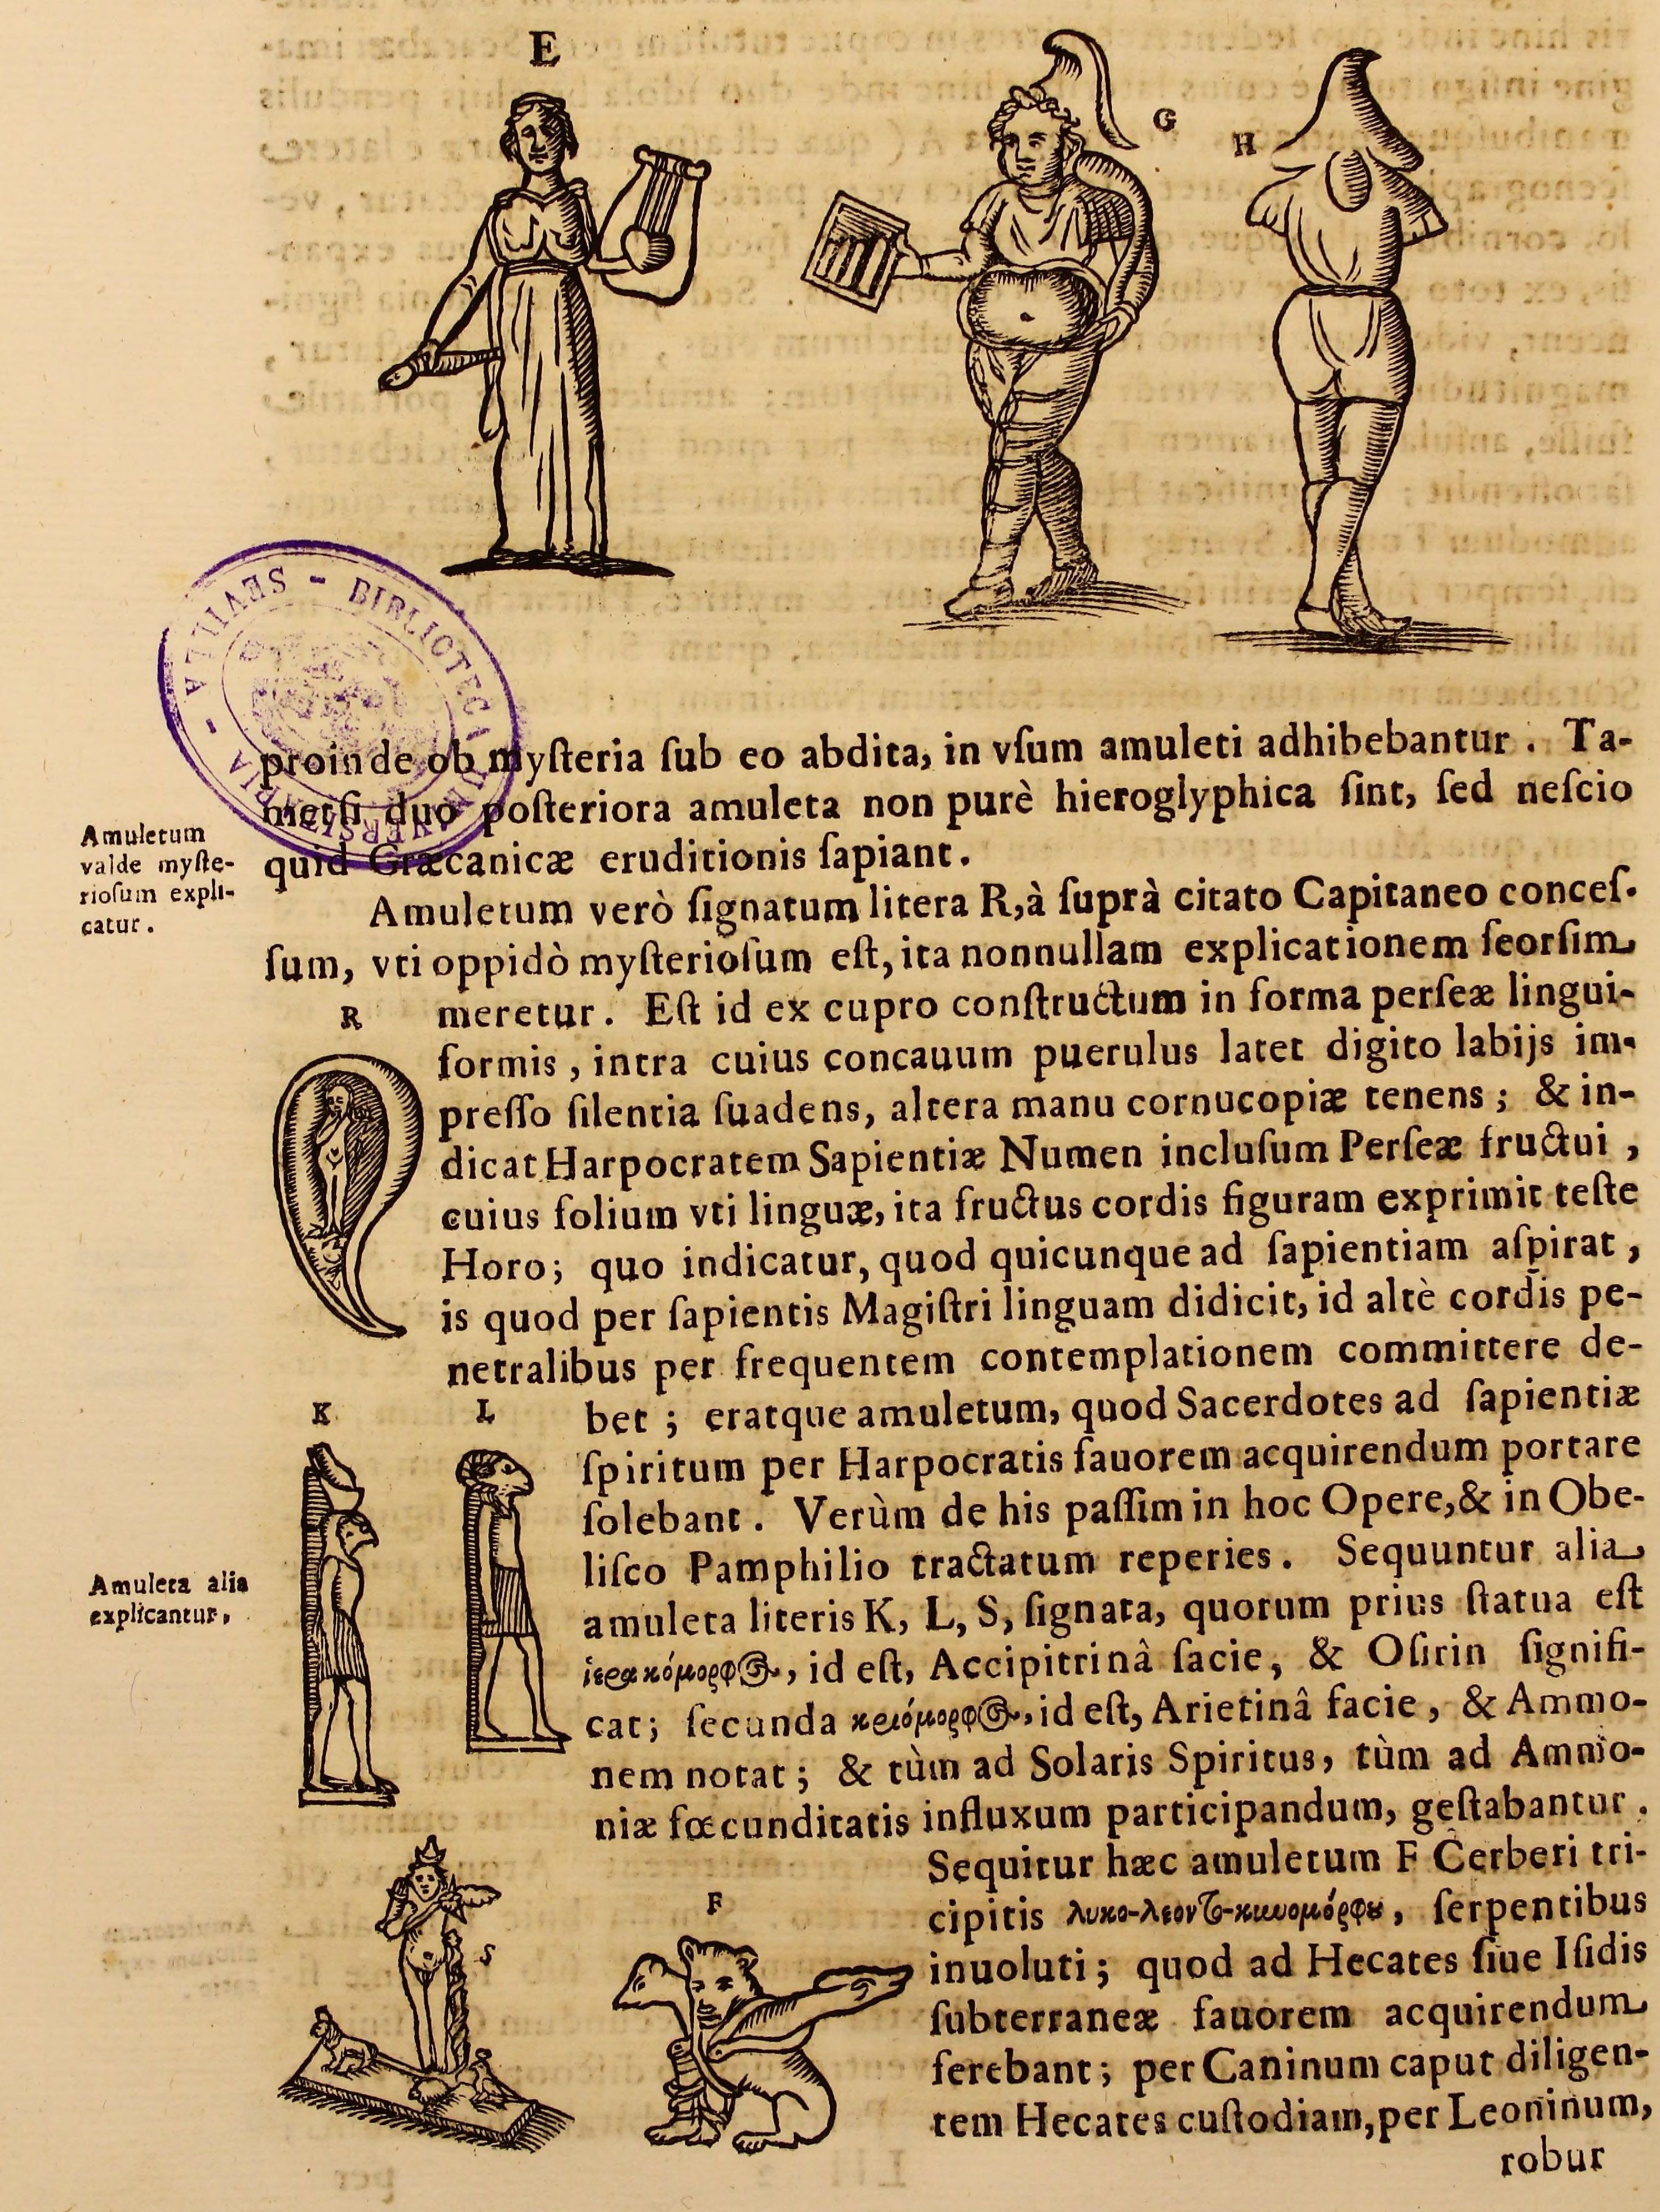 E
G
H
BIBLIOTECA UNIVERSITARIA - SEVILLA -
proinde ob myſteria ſub eo abdita, in vſum amuleti adhibebantur. Ta-
metſi duo poſteriora amuleta non purè hieroglyphica ſint, ſed neſcio
quid Græcanicæ eruditionis ſapiant.
Amuletum
valde myſte-
rioſum expli-
catur.
Amuletum verò ſignatum litera R, à ſuprà citato Capitaneo conceſ-
ſum, vti oppidò myſterioſum eſt, ita nonnullam explicationem ſeorſim
R
meretur. Eſt id ex cupro conſtructum in forma perſeæ lingui-
formis, intra cuius concauum puerulus latet digito labijs im-
preſſo ſilentia ſuadens, altera manu cornucopiæ tenens; & in-
dicat Harpocratem Sapientiæ Numen incluſum Perſeæ fructui,
cuius folium vti linguæ, ita fructus cordis figuram exprimit teſte
Horo; quo indicatur, quod quicunque ad ſapientiam aſpirat,
is quod per ſapientis Magiſtri linguam didicit, id altè cordis pe-
netralibus per frequentem contemplationem committere de-
K
L
bet; eratque amuletum, quod Sacerdotes ad ſapientiæ
ſpiritum per Harpocratis fauorem acquirendum portare
ſolebant. Verùm de his paſſim in hoc Opere, & in Obe-
liſco Pamphilio tractatum reperies. Sequuntur alia
Amuleta alia
explicantur,
amuleta literis K, L, S, ſignata, quorum prius ſtatua eſt
ἱερακόμορφος, id eſt, Accipitrinâ facie, & Oſirin ſignifi-
cat; ſecunda κριόμορφος, id eſt, Arietinâ facie, & Ammo-
nem notat; & tùm ad Solaris Spiritus, tùm ad Ammo-
niæ fœcunditatis influxum participandum, geſtabantur.
Sequitur hæc amuletum F Cerberi tri-
F
S
cipitis λυκο-λεοντο-κυνομόρφου, ſerpentibus
inuoluti; quod ad Hecates ſiue Iſidis
ſubterraneæ fauorem acquirendum
ferebant; per Caninum caput diligen-
tem Hecates cuſtodiam, per Leoninum,
robur